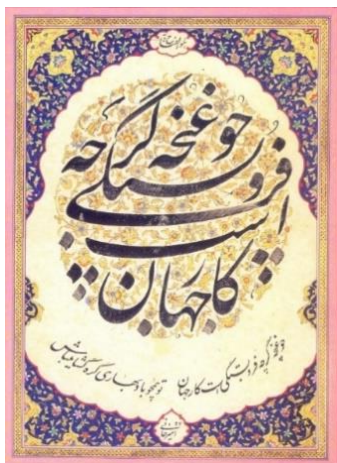 چو غنچه گرچه
فروبستگی
است
کار جهان
چو غنچه گرچه فروبستگی است کار جهان
تو همچو باد بهاری گره گشا میباش